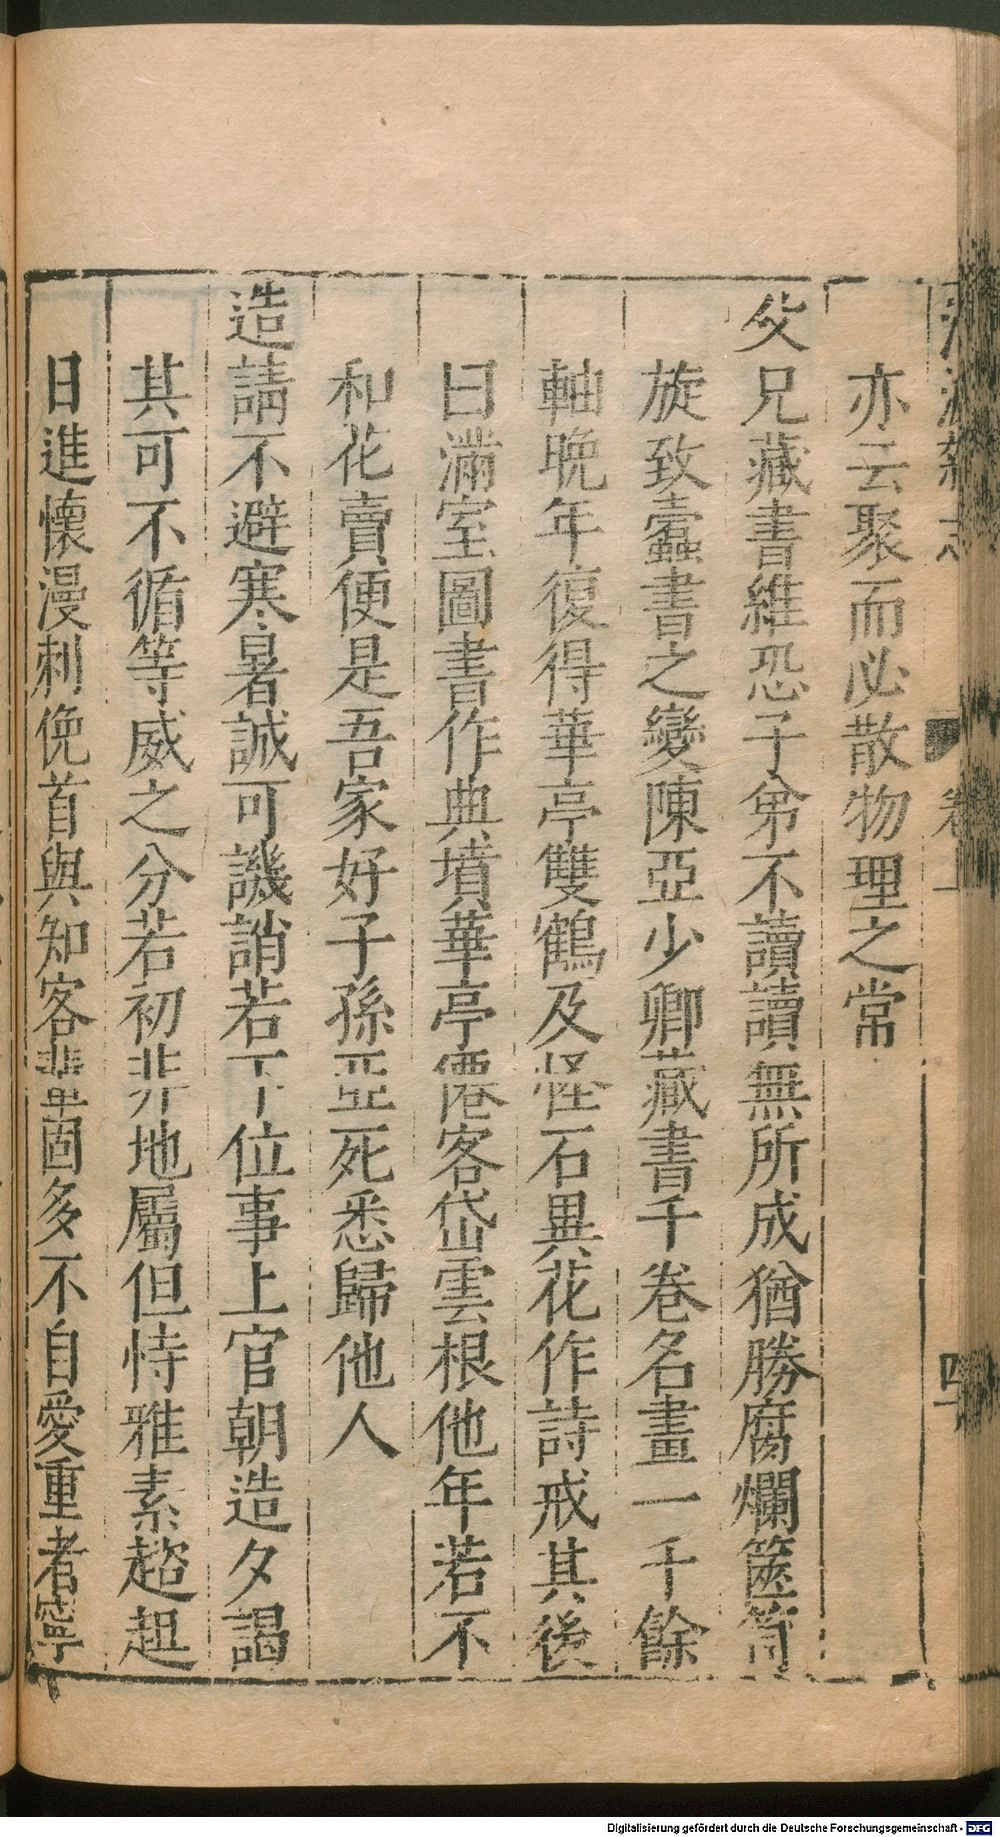 卷上
四
亦云聚而必散物理之常
父兄藏書維恐子弟不讀讀無所成猶勝腐爛篋笥
旋致蠹書之變陳亞少卿藏書千卷名畫一千餘
軸晚年復得華亭雙鶴及怪石異花作詩戒其後
曰滿室圖書作典墳華亭僊客岱雲根他年若不
和花賣便是吾家好子孫亞死悉歸他人
造請不避寒暑誠可譏誚若下位事上官朝造夕謁
其可不循等威之分若初非地屬但恃雅素趦趄
日進懷漫刺俛首與知客輩固多不自愛重者寧
Digitalisierung gefördert durch die Deutsche Forschungsgemeinschaft - DFG